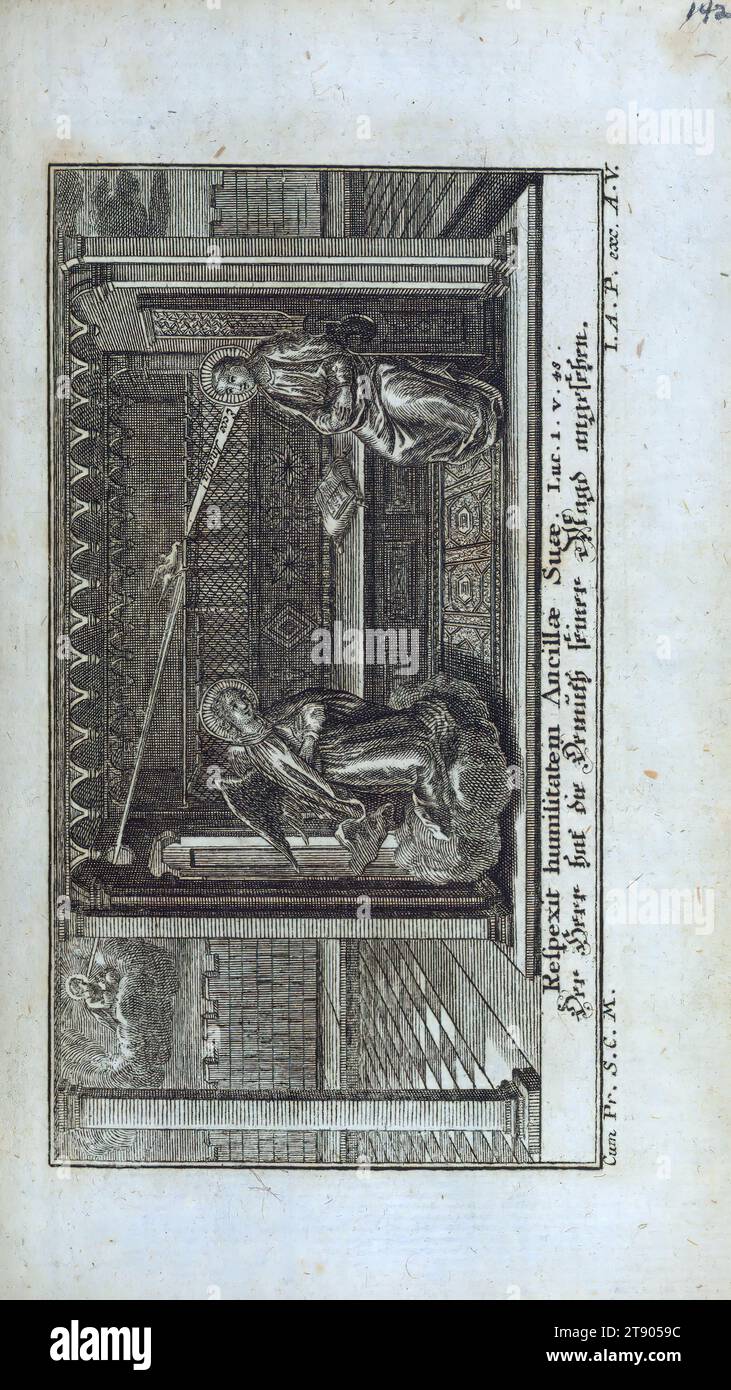 142
Ecce Ancilla
Respexit humilitatem Ancillæ Suæ, Luc. 1. v. 48.
Der Herr hat die Demuth seiner Magd angesehen.
Cum Pr. S. C. M. I. A. P. exc. A. V.
alamy
alamy
alamy
Image ID: 2T9059C
www.alamy.com